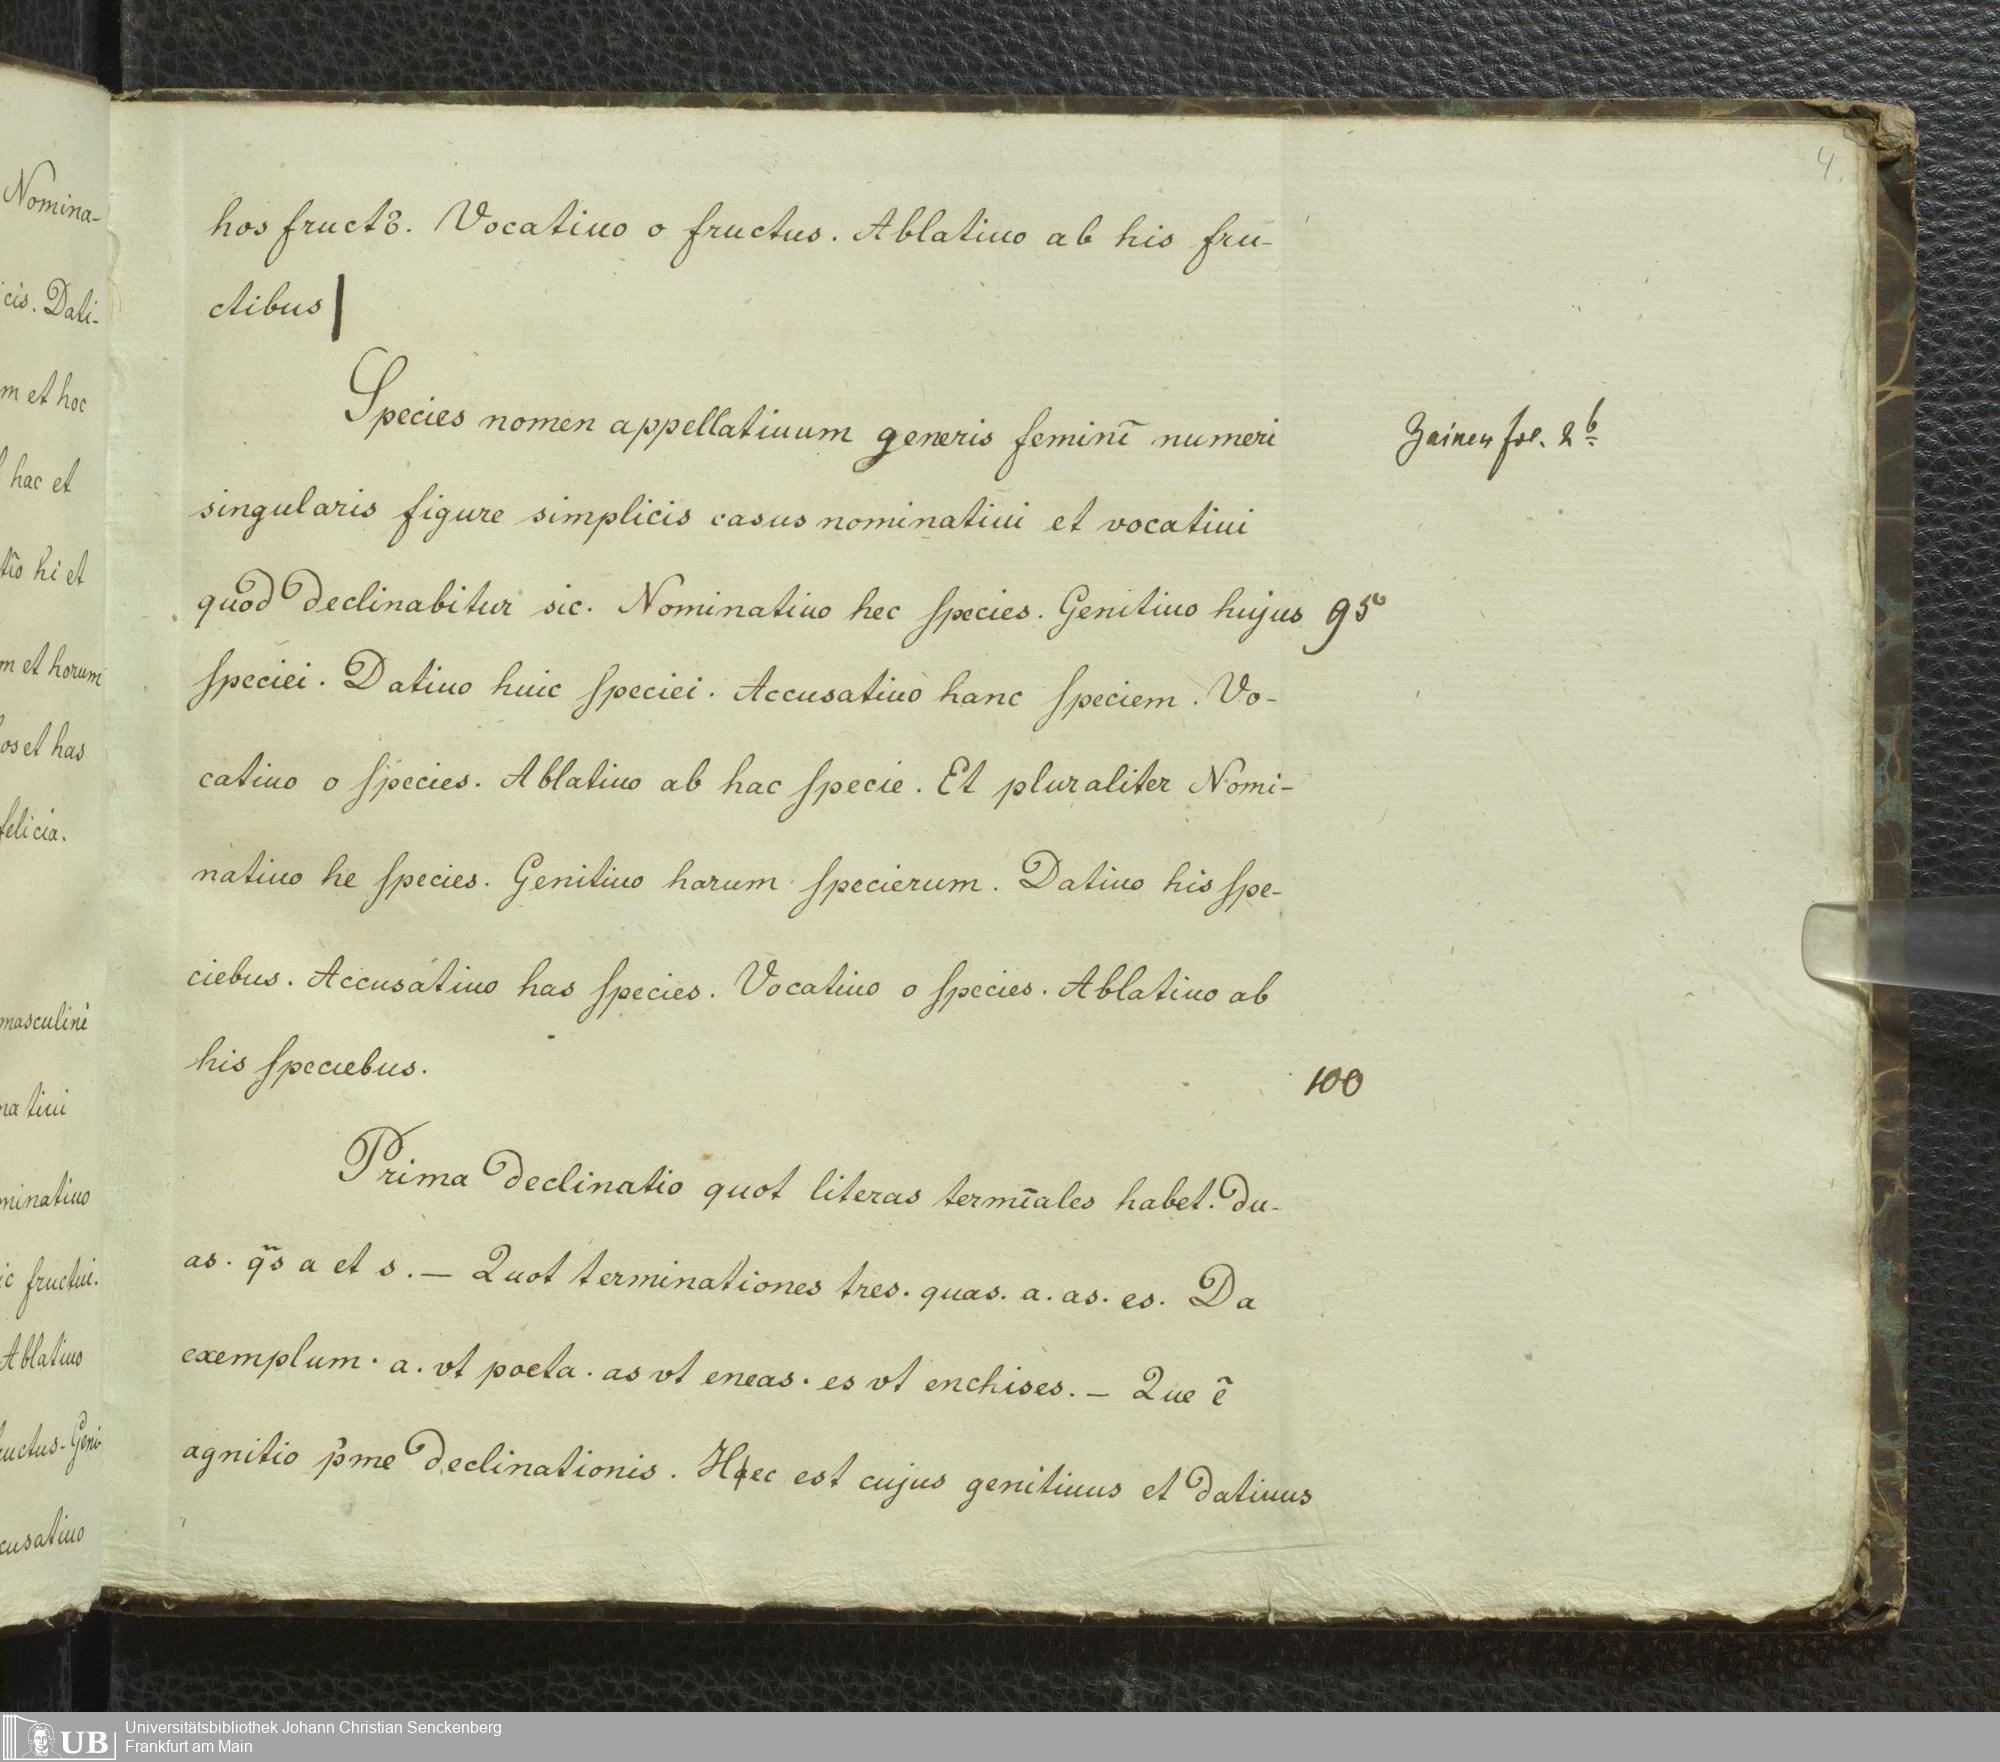 4.
hos fructꝫ. Vocatiuo o fructus. Ablatiuo ab his fru-
ctibus|
Species nomen appellatiuum generis feminī numeri
Zainer fol. 2b
singularis figure simplicis casus nominatiui et vocatiui
quod declinabitur sic. Nominatiuo hec species. Genitiuo hujus 95
speciei. Datiuo huic speciei. Accusatiuo hanc speciem. Vo-
catiuo o species. Ablatiuo ab hac specie. Et pluraliter Nomi-
natiuo he species. Genitiuo harum specierum. Datiuo his spe-
ciebus. Accusatiuo has species. Vocatiuo o species. Ablatiuo ab
his speciebus. 100
Prima declinatio quot literas termīales habet. du-
as. q̄s a et s. — Quot terminationes tres. quas. a. as. es. Da
exemplum. a. vt poeta. as vt eneas. es vt enchises. — Que ē
agnitio p̄me declinationis. Hec est cujus genitiuus et datiuus
Nomina-
cis. Dati-
m et hoc
hac et
tīo hi et
m et horum
os et has
felicia.
masculini
natiui
minatiuo
ic fructui.
Ablatiuo
uctus. Geni-
cusatiuo
UB
Universitätsbibliothek Johann Christian Senckenberg
Frankfurt am Main